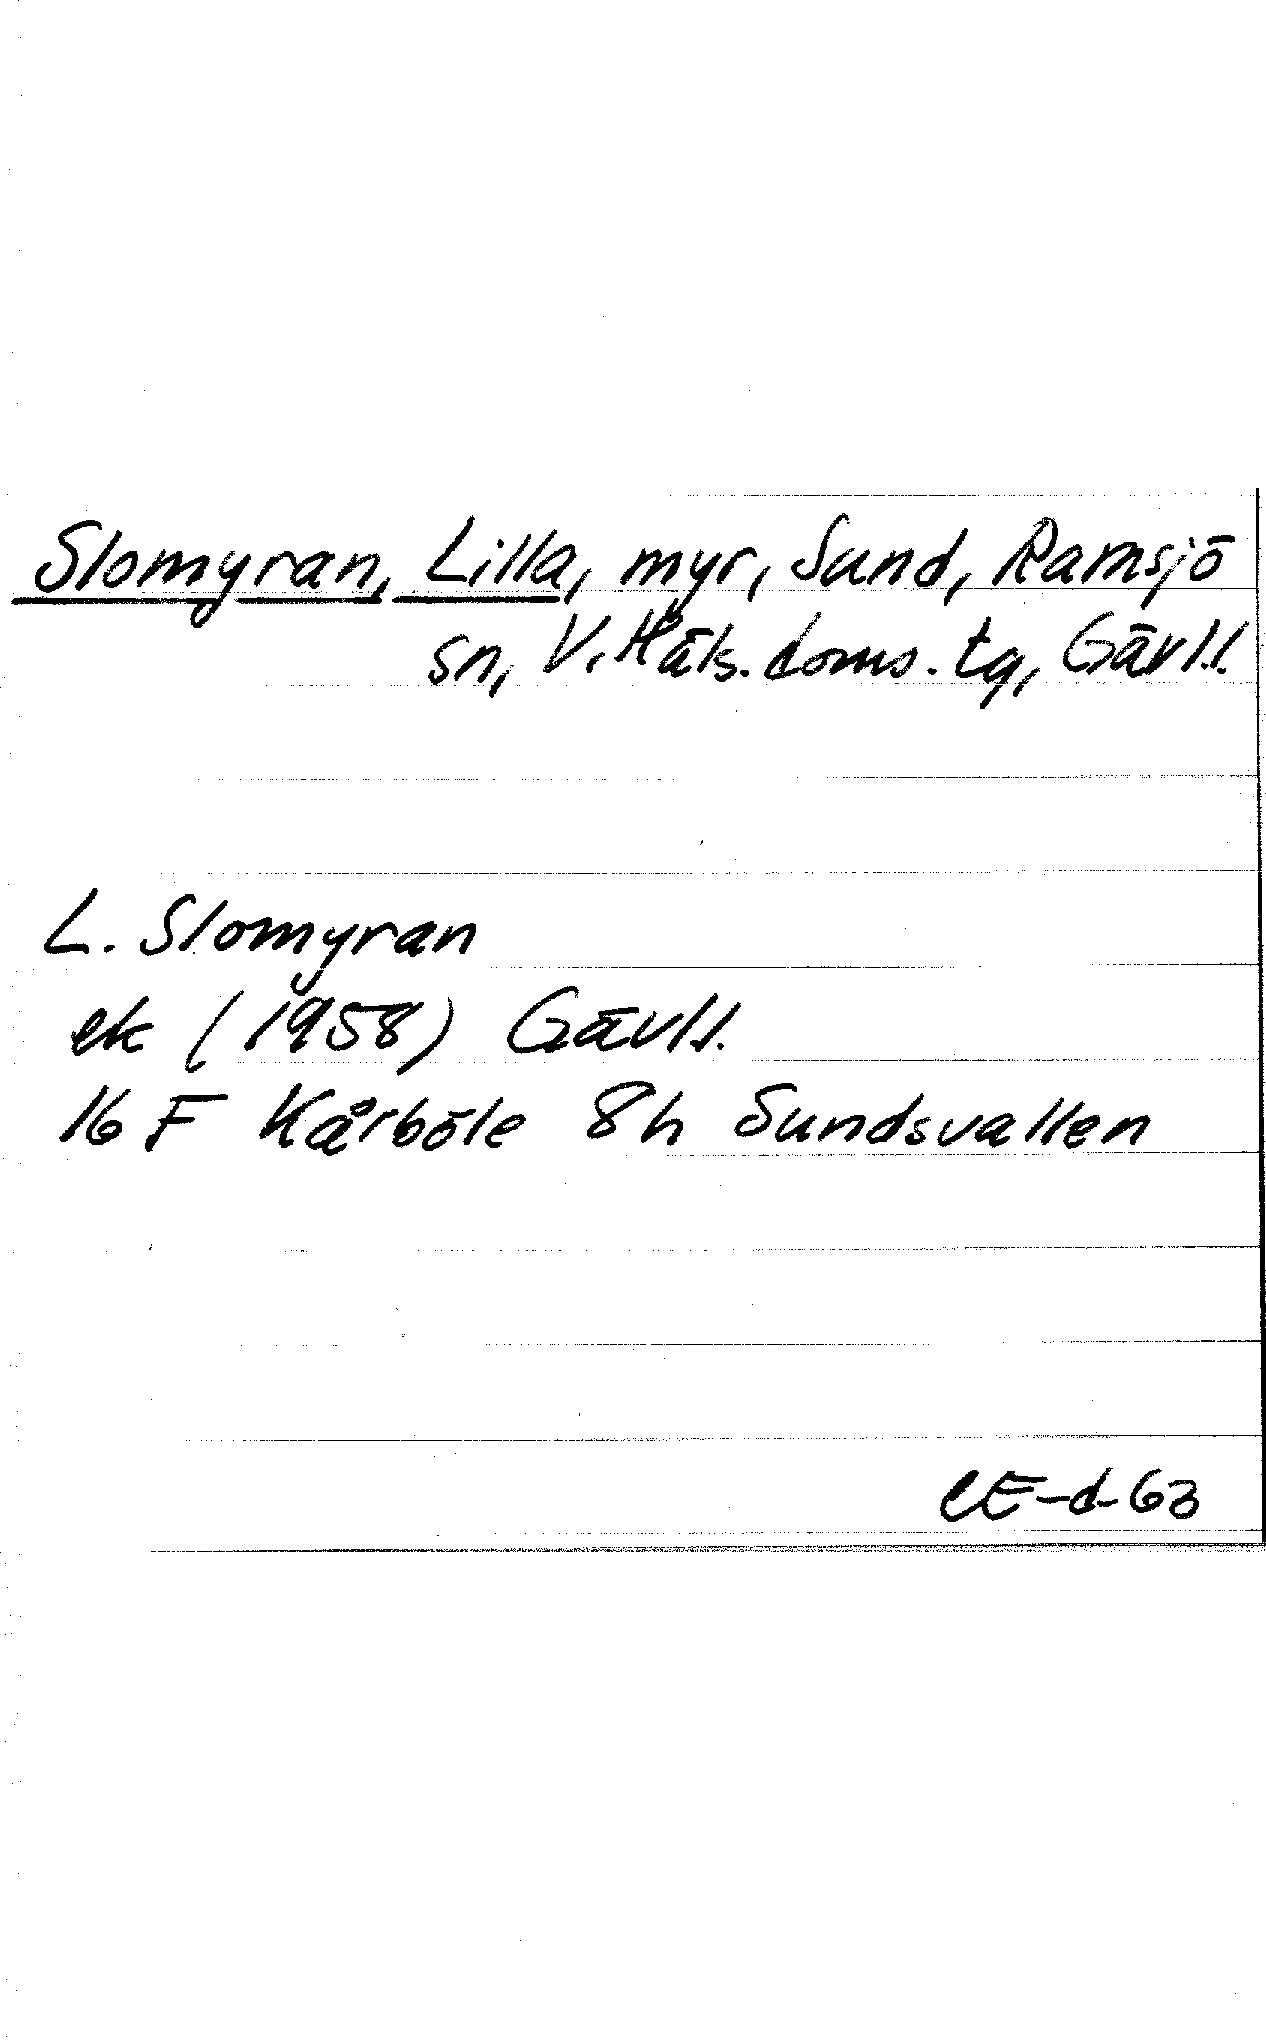 Slomyran, Lilla, myr, Sund, Ramsjö
sn, V. Häls. doms. tg, Gävl.l.
L. Slomyran
ek (1958) Gävl.l.
16 F Kårböle 8h Sundsvallen
CE-d-63